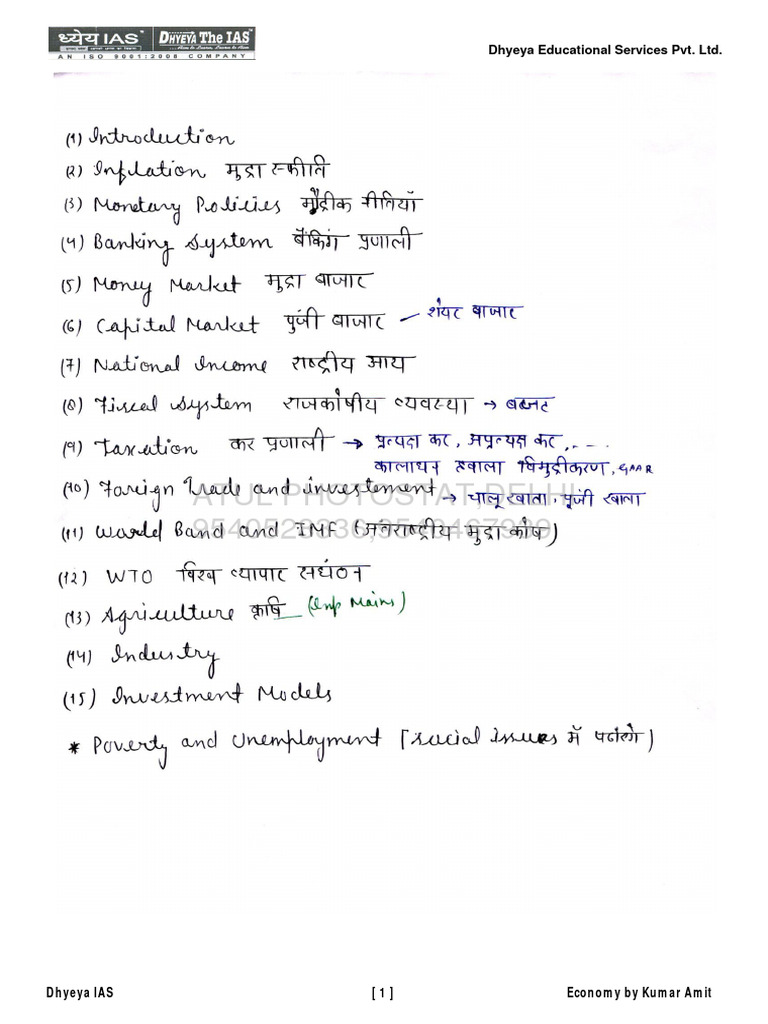 ध्येय IAS DHYEYA The IAS
AN ISO 9001:2008 COMPANY
Dhyeya Educational Services Pvt. Ltd.
(1) Introduction
(2) Inflation मुद्रा स्फीति
(3) Monetary Policies मौद्रीक नीतियाँ
(4) Banking System बैंकिंग प्रणाली
(5) Money Market मुद्रा बाजार
(6) Capital Market पुंजी बाजार – शेयर बाजार
(7) National Income राष्ट्रीय आय
(8) Fiscal System राजकोषीय व्यवस्था → बजट
(9) Taxation कर प्रणाली → प्रत्यक्ष कर, अप्रत्यक्ष कर, ---
कालाधन हवाला विमुद्रीकरण, GAAR
(10) Foreign Trade and investement → चालू खाता, पूंजी खाता
ATUL PHOTOSTAT, DELHI
(11) World Band and IMF (अंतराष्ट्रीय मुद्रा कोष)
(12) WTO विश्व व्यापार संघठन
(13) Agriculture कृषि (Imp Mains)
(14) Industry
(15) Investment Models
* Poverty and Unemployment [social issues में पढ़ेंगे)
Dhyeya IAS [ 1 ] Economy by Kumar Amit